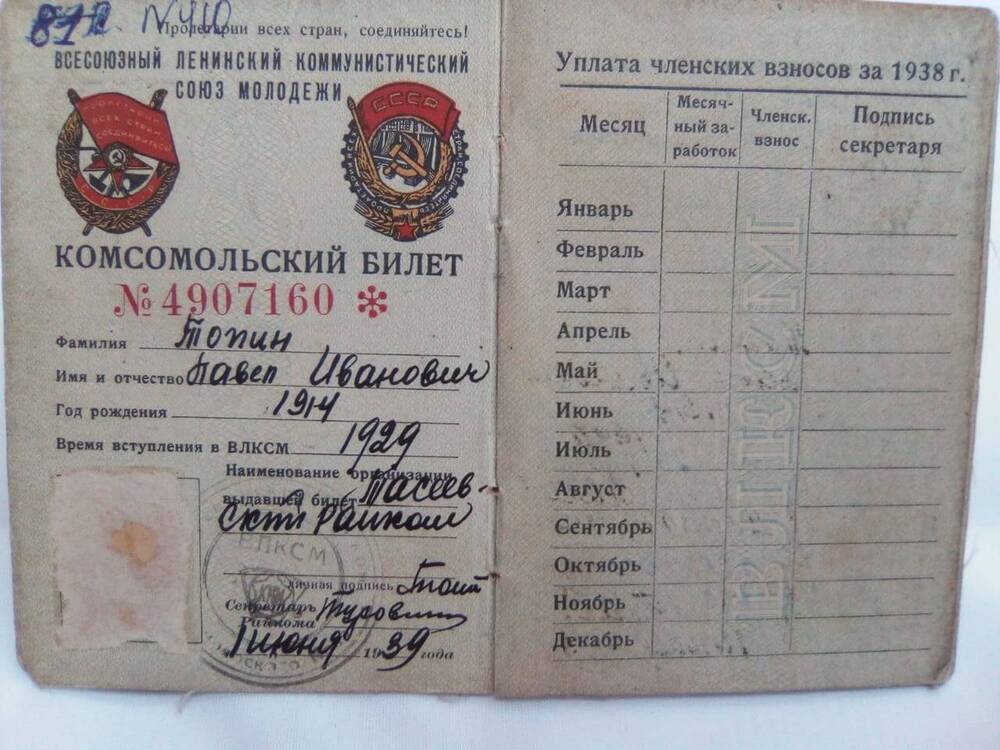 812 N 410
Пролетарии всех стран, соединяйтесь!
ВСЕСОЮЗНЫЙ ЛЕНИНСКИЙ КОММУНИСТИЧЕСКИЙ
СОЮЗ МОЛОДЕЖИ
ПРОЛЕТАРИИ
ВСЕХ СТРАН
СОЕДИНЯЙТЕСЬ!
СССР
СССР
КОМСОМОЛЬСКИЙ БИЛЕТ
№ 4907160
Фамилия Топин
Имя и отчество Павел Иванович
Год рождения 1914
Время вступления в ВЛКСМ 1929
Наименование организации,
выдавшей билет Тасеев-
ский Райком
ВЛКСМ
Личная подпись Топин
Секретарь
Райкома
1 июня 1939 года
Уплата членских взносов за 1938 г.
Месяц
Месяч-
ный за-
работок
Членск.
взнос
Подпись
секретаря
Январь
Февраль
Март
Апрель
Май
Июнь
Июль
Август
Сентябрь
Октябрь
Ноябрь
Декабрь
ВЛКСМ